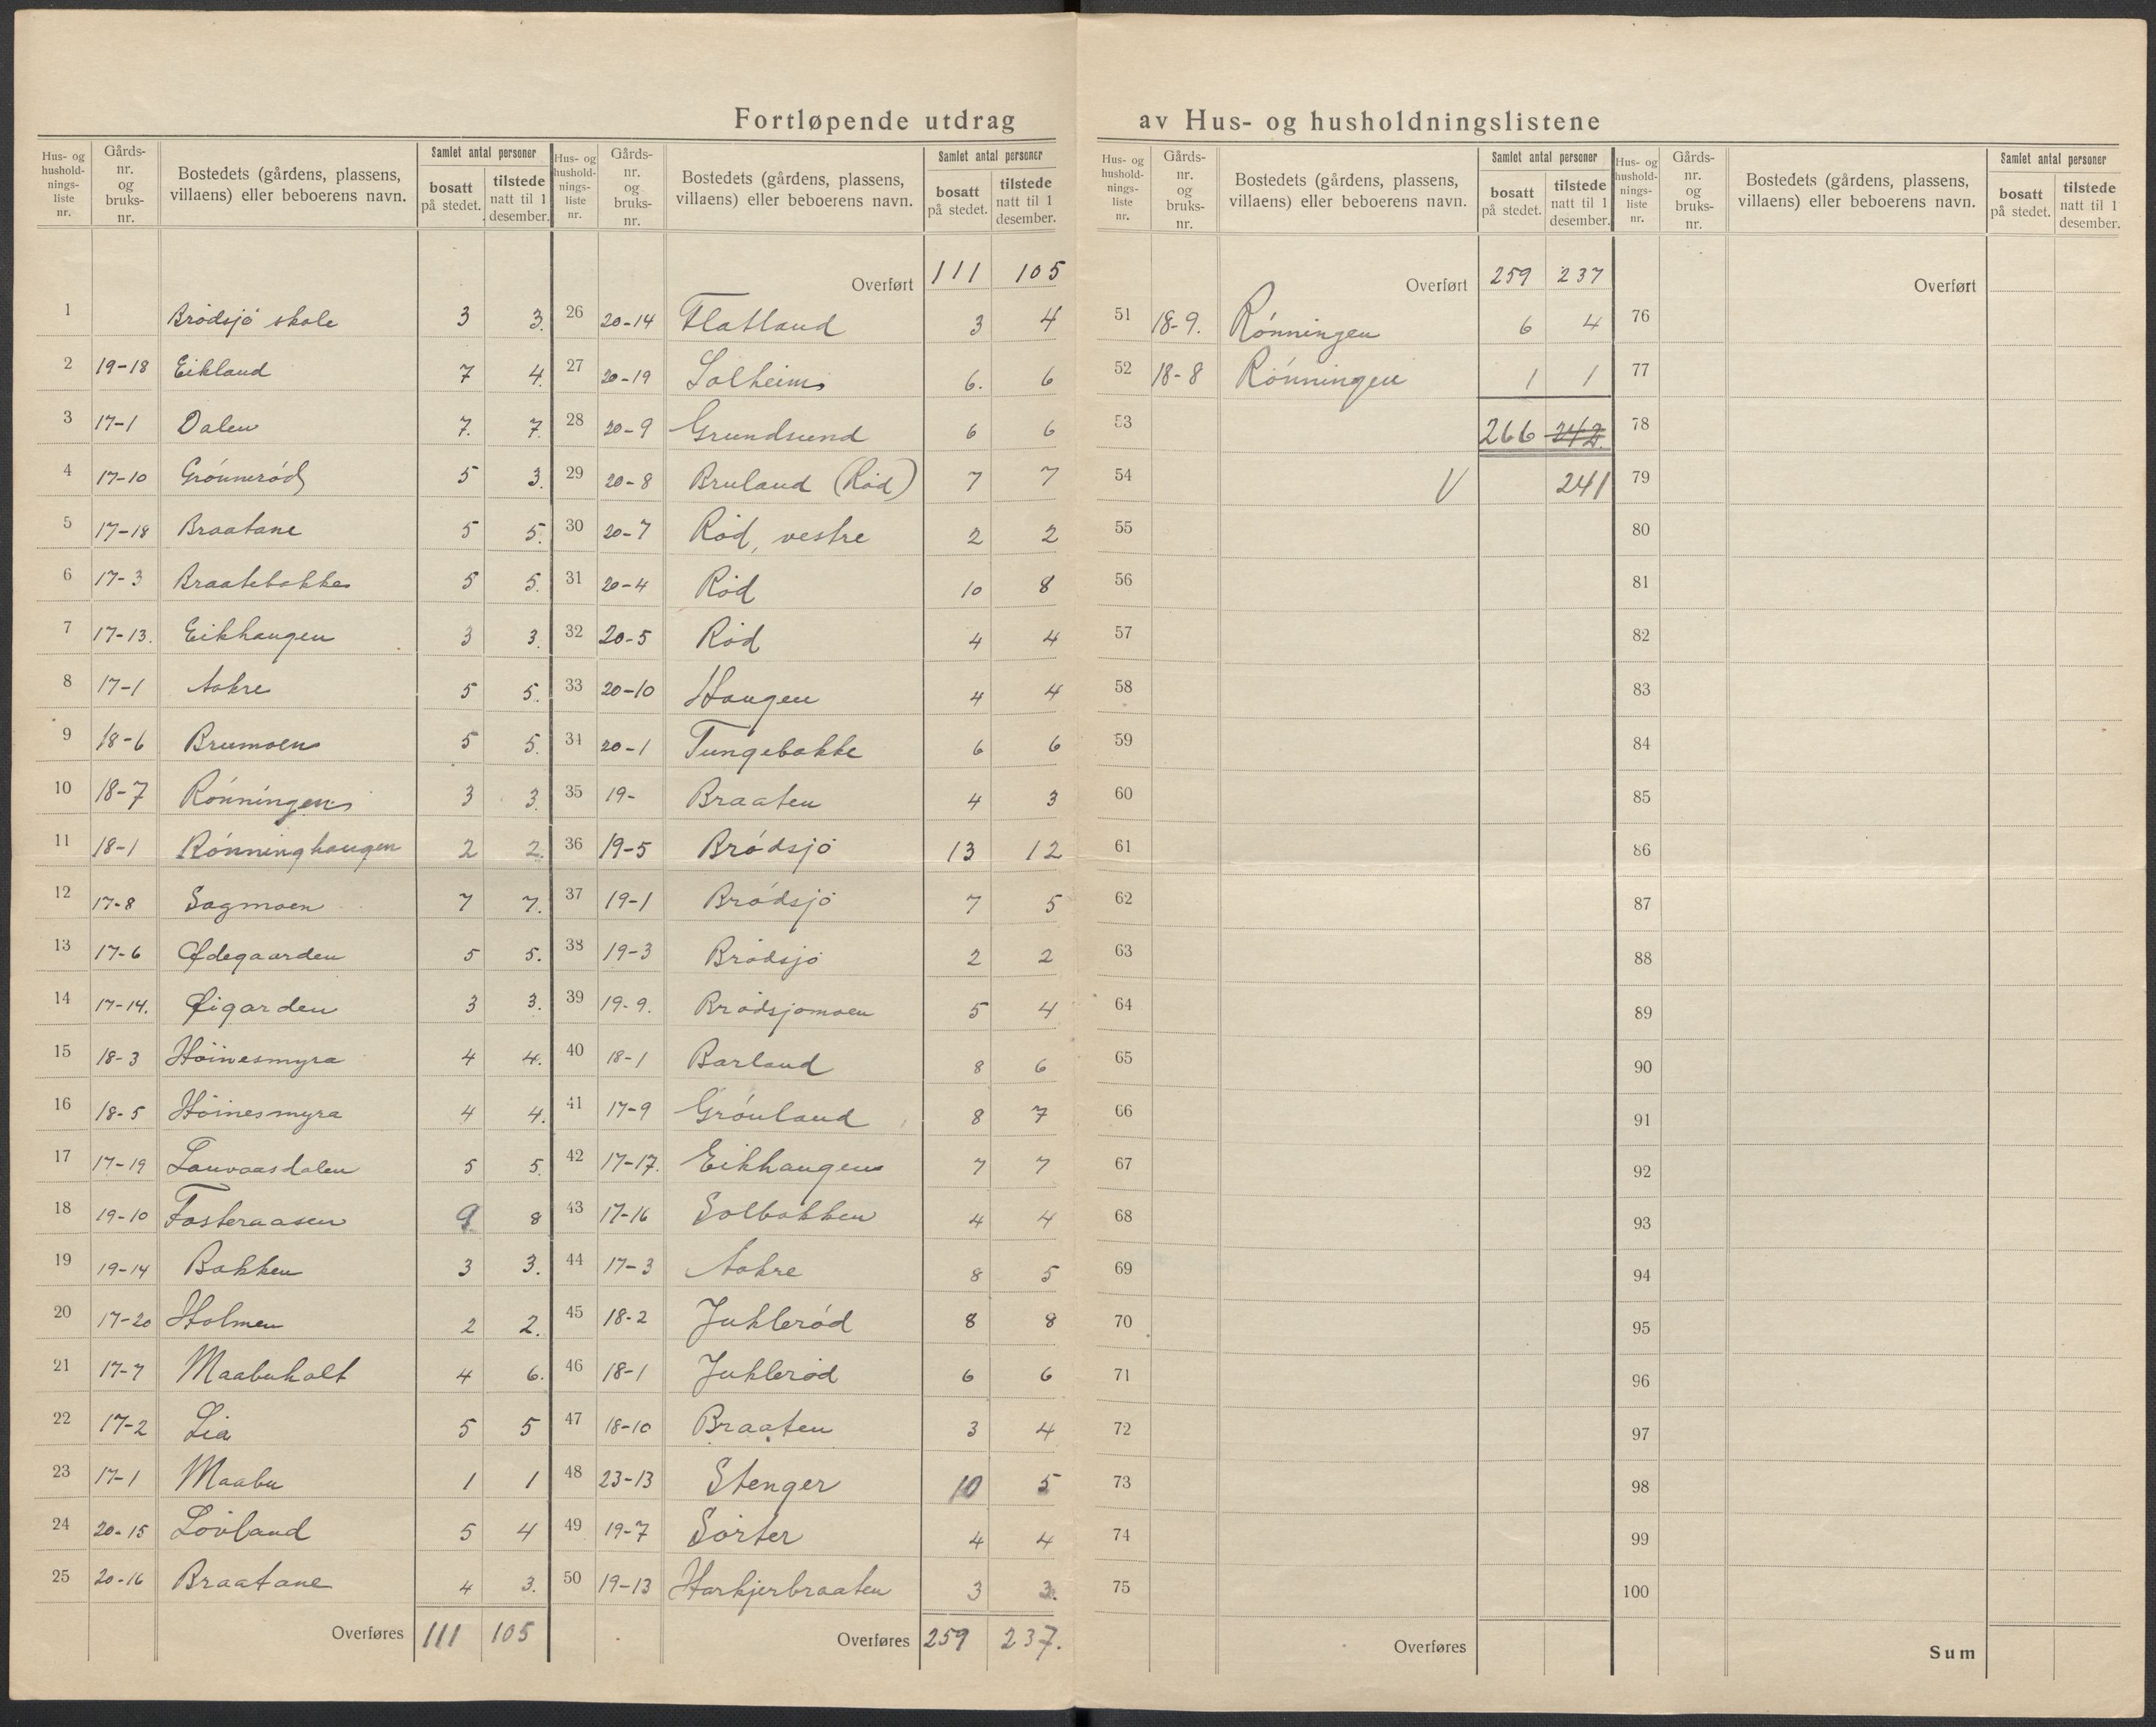 Fortløpende utdrag av Hus- og husholdningslistene
Hus- og hushold-nings-liste nr. | Gårds-nr. og bruks-nr. | Bostedets (gårdens, plassens, villaens) eller beboerens navn. | Samlet antal personer | bosatt på stedet. | tilstede natt til 1 desember.
1 Brødsjø skole 3 3.
2 19-18 Eikland 7 4.
3 17-1 Dalen 7. 7.
4 17-10 Grønnerød 5 3.
5 17-18 Braatane 5 5.
6 17-3 Braatebakken 5 5.
7 17-13. Eikhaugen 3 3.
8 17-1 Aakre 5 5.
9 18-6 Brumoen 5 5.
10 18-7 Rønningen 3 3.
11 18-1 Rønninghaugen 2 2.
12 17-8 Sagmoen 7 7.
13 17-6 Ødegaarden 5 5.
14 17-14. Øigarden 3 3.
15 18-3 Høinesmyra 4 4.
16 18-5 Høinesmyra 4 4.
17 17-19 Lauvaasdalen 5 5.
18 19-10 Fosteraasen 9 8
19 19-14 Bakken 3 3.
20 17-20 Holmen 2 2.
21 17-7 Maabuholt 4 6.
22 17-2 Lia 5 5
23 17-1 Maabu 1 1
24 20-15 Løvland 5 4
25 20-16 Braatane 4 3.
Overføres 111 105
Hus- og hushold-nings-liste nr. | Gårds-nr. og bruks-nr. | Bostedets (gårdens, plassens, villaens) eller beboerens navn. | Samlet antal personer | bosatt på stedet. | tilstede natt til 1 desember.
Overført 111 105
26 20-14 Flatland 3 4
27 20-19 Solheim 6. 6
28 20-9 Grundsund 6 6
29 20-8 Bruland (Rød) 7 7
30 20-7 Rød, vestre 2 2
31 20-4 Rød 10 8
32 20-5 Rød 4 4
33 20-10 Haugen 4 4
34 20-1 Tungebakke 6 6
35 19- Braaten 4 3
36 19-5 Brødsjø 13 12
37 19-1 Brødsjø 7 5
38 19-3 Brødsjø 2 2
39 19-9. Brødsjømoen 5 4
40 18-1 Barland 8 6
41 17-9 Grønland 8 7
42 17-17. Eikhaugen 7 7
43 17-16 Solbakken 4 4
44 17-3 Aakre 8 5
45 18-2 Juklerød 8 8
46 18-1 Juklerød 6 6
47 18-10 Braaten 3 4
48 23-13 Stenger 10 5
49 19-7 Sørter 4 4
50 19-13 Harkjerbraaten 3 3.
Overføres 259 237.
Hus- og hushold-nings-liste nr. | Gårds-nr. og bruks-nr. | Bostedets (gårdens, plassens, villaens) eller beboerens navn. | Samlet antal personer | bosatt på stedet. | tilstede natt til 1 desember.
Overført 259 237
51 18-9. Rønningen 6 4
52 18-8 Rønningen 1 1
53 266 242.
54 V 241
55
56
57
58
59
60
61
62
63
64
65
66
67
68
69
70
71
72
73
74
75
Overføres
Hus- og hushold-nings-liste nr. | Gårds-nr. og bruks-nr. | Bostedets (gårdens, plassens, villaens) eller beboerens navn. | Samlet antal personer | bosatt på stedet. | tilstede natt til 1 desember.
Overført
76
77
78
79
80
81
82
83
84
85
86
87
88
89
90
91
92
93
94
95
96
97
98
99
100
Sum